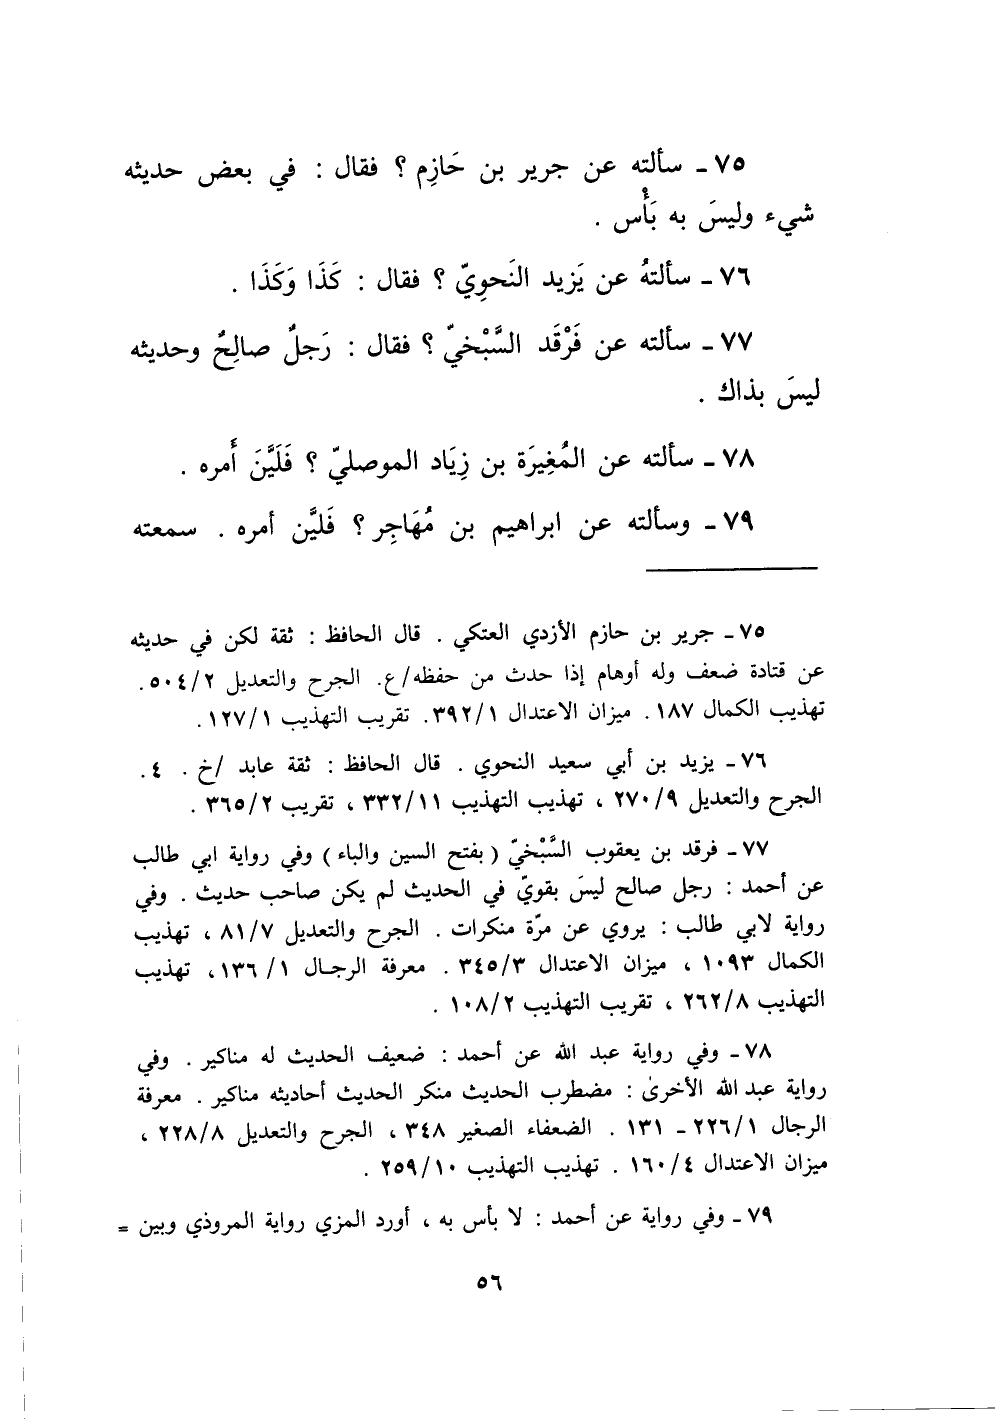 ٧٥ ـ سألته عن جرير بن حَازِم ؟ فقال : في بعض حديثه
شيء وليسَ به بَأْس .
٧٦ ـ سألتهُ عن يَزيد النَحوِيّ ؟ فقال : كَذَا وَكَذَا .
٧٧ ـ سألته عن فَرْقَد السَّبْخيّ ؟ فقال : رَجلٌ صالِحٌ وحديثه
ليسَ بذاك .
٧٨ ـ سألته عن المُغِيرَة بن زِيَاد الموصليّ ؟ فَلَيَّنَ أَمره .
٧٩ ـ وسألته عن ابراهيم بن مُهَاجِر ؟ فَليَّن أمره . سمعته
٧٥ ـ جرير بن حازم الأزدي العتكي . قال الحافظ : ثقة لكن في حديثه
عن قتادة ضعف وله أوهام إذا حدث من حفظه/ع. الجرح والتعديل ٥٠٤/٢ .
تهذيب الكمال ١٨٧ . ميزان الاعتدال ٣٩٢/١. تقريب التهذيب ١٢٧/١ .
٧٦ ـ يزيد بن أبي سعيد النحوي . قال الحافظ : ثقة عابد /خ . ٤ .
الجرح والتعديل ٢٧٠/٩ ، تهذيب التهذيب ٣٣٢/١١ ، تقريب ٣٦٥/٢ .
٧٧ ـ فرقد بن يعقوب السَّبْخيّ ( بفتح السين والباء ) وفي رواية ابي طالب
عن أحمد : رجل صالح ليسَ بقويّ في الحديث لم يكن صاحب حديث . وفي
رواية لابي طالب : يروي عن مرّة منكرات . الجرح والتعديل ٨١/٧ ، تهذيب
الكمال ١٠٩٣ ، ميزان الاعتدال ٣٤٥/٣ . معرفة الرجال ١٣٦/١، تهذيب
التهذيب ٢٦٢/٨ ، تقريب التهذيب ١٠٨/٢ .
٧٨ ـ وفي رواية عبد الله عن أحمد : ضعيف الحديث له مناكير . وفي
رواية عبد الله الأخرىٰ : مضطرب الحديث منكر الحديث أحاديثه مناكير . معرفة
الرجال ٢٢٦/١ ـ ١٣١ . الضعفاء الصغير ٣٤٨ ، الجرح والتعديل ٢٢٨/٨ ،
ميزان الاعتدال ١٦٠/٤ . تهذيب التهذيب ٢٥٩/١٠ .
٧٩ ـ وفي رواية عن أحمد : لا بأس به ، أورد المزي رواية المروذي وبين =
٥٦